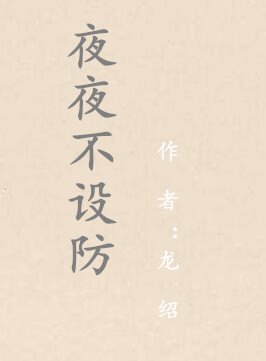 夜夜不设防
作者：龙绍